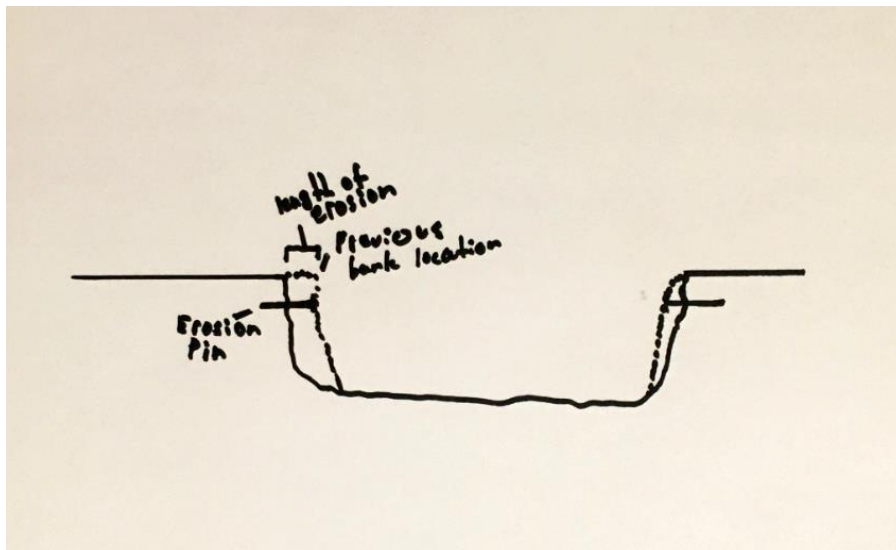 length of
erosion
Previous
bank location
Erosion
Pin